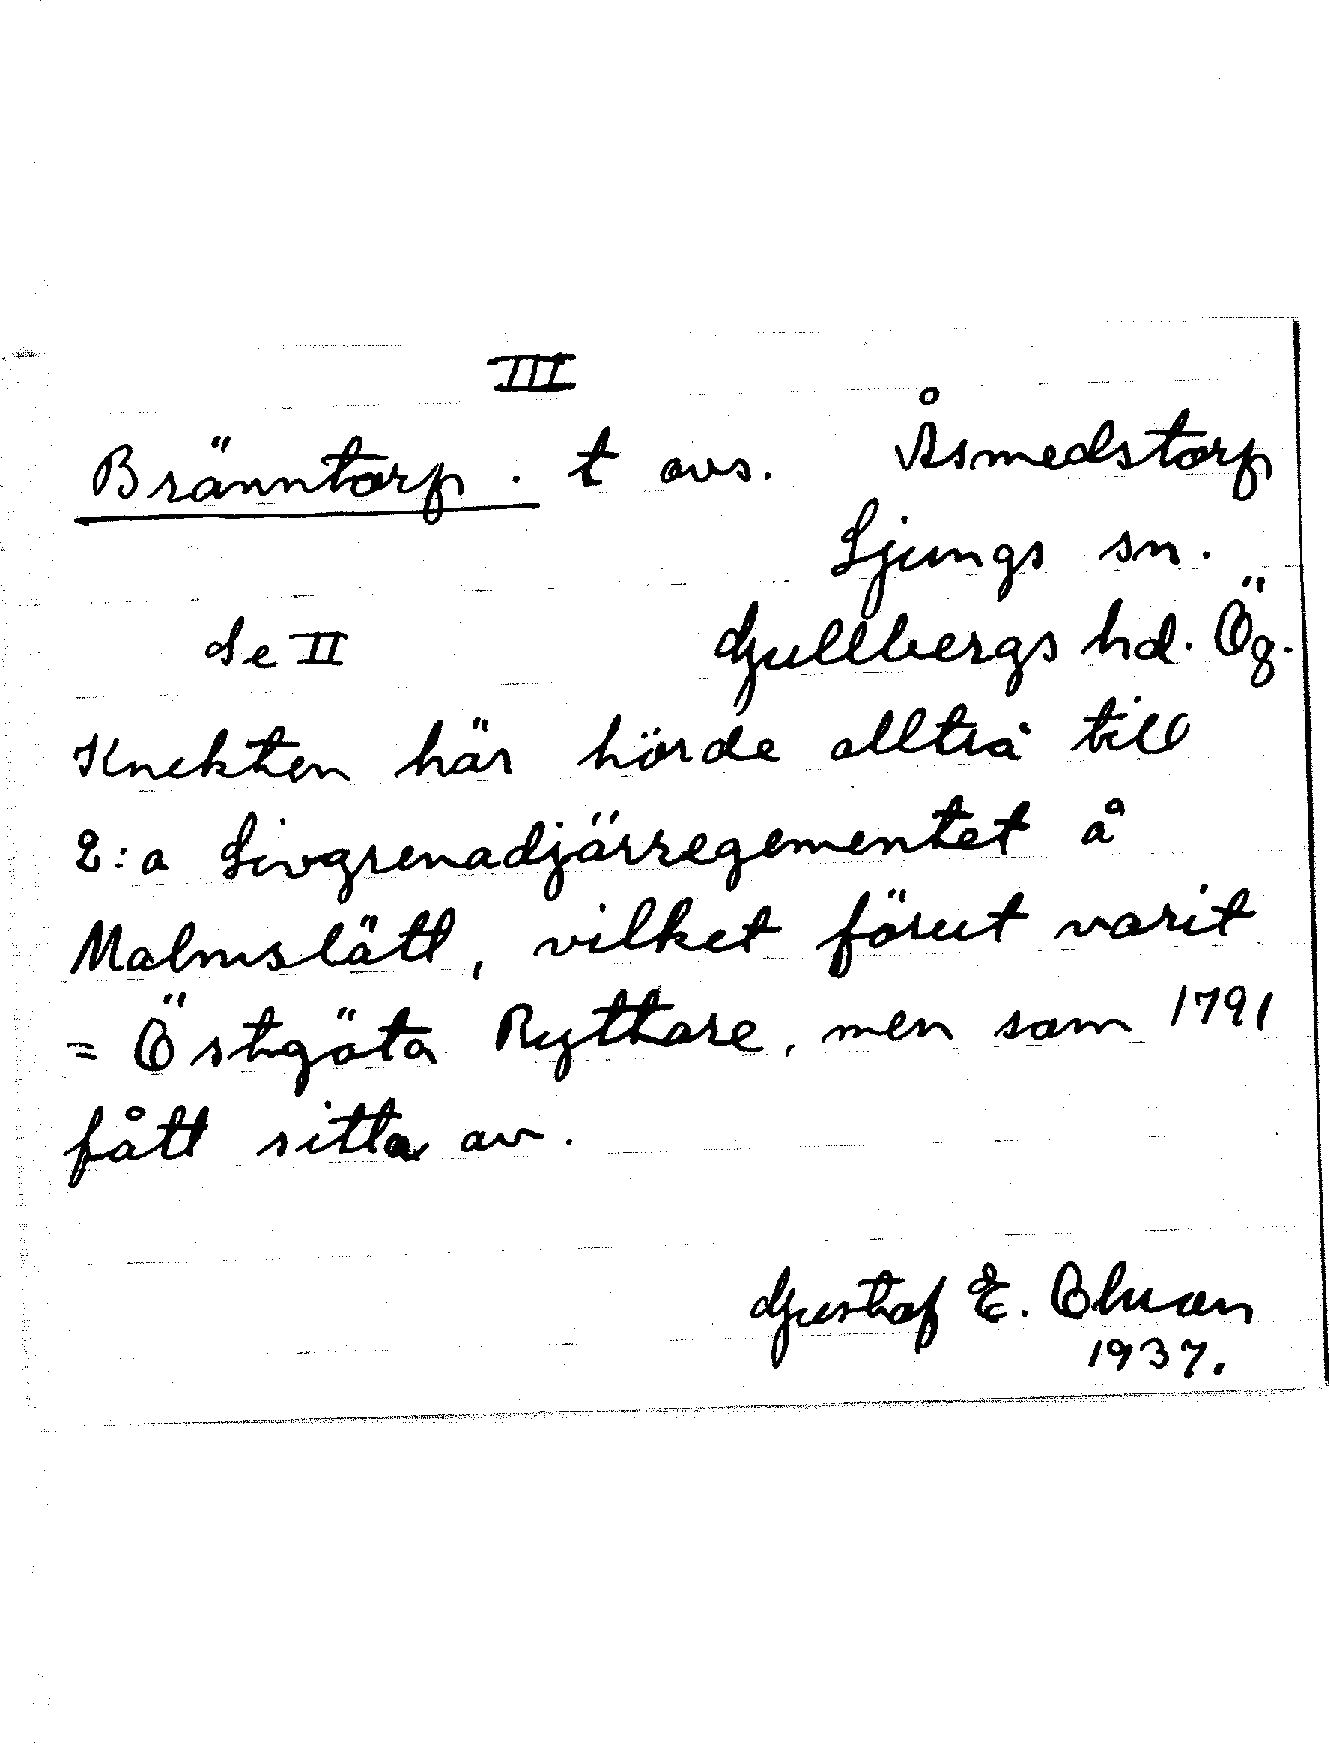 III
Bränntorp. t avs. Åsmedstorp
Ljungs sn.
Se II Gullbergs hd. Ög.
Knekten här hörde alltså till
2:a Livgrenadjärregementet å
Malmslätt, vilket förut varit
= Östgöta Ryttare, men som 1791
fått sitta av.
Gustaf E. Ohman
1937.